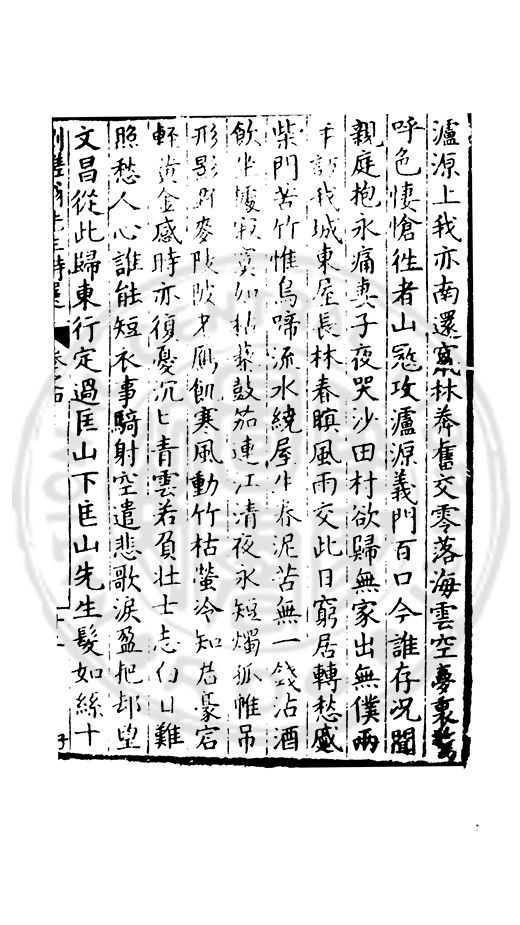 瀘源上我亦南還窮林莽舊交零落海雲空夢裏驚
呼色悽愴徃者山冦攻瀘源義門百口今誰存況聞
親庭抱永痛妻子夜哭沙田村欲歸無家出無僕兩
年訪我城東屋長林春暝風雨交此日窮居轉愁感
柴門苦竹惟鳥啼流水繞屋生春泥苦無一錢沽酒
飲坐嘆寂寞如枯藜鼓笳連江清夜永短燭孤帷吊
形影野麥陂陂才鴈飢寒風動竹枯螢冷知君豪宕
輕黃金感時亦復憂沉匕青雲若負壯士志白日難
照愁人心誰能短衣事騎射空遣悲歌淚盈把却望
文昌從此歸東行定過匡山下匡山先生髮如絲十